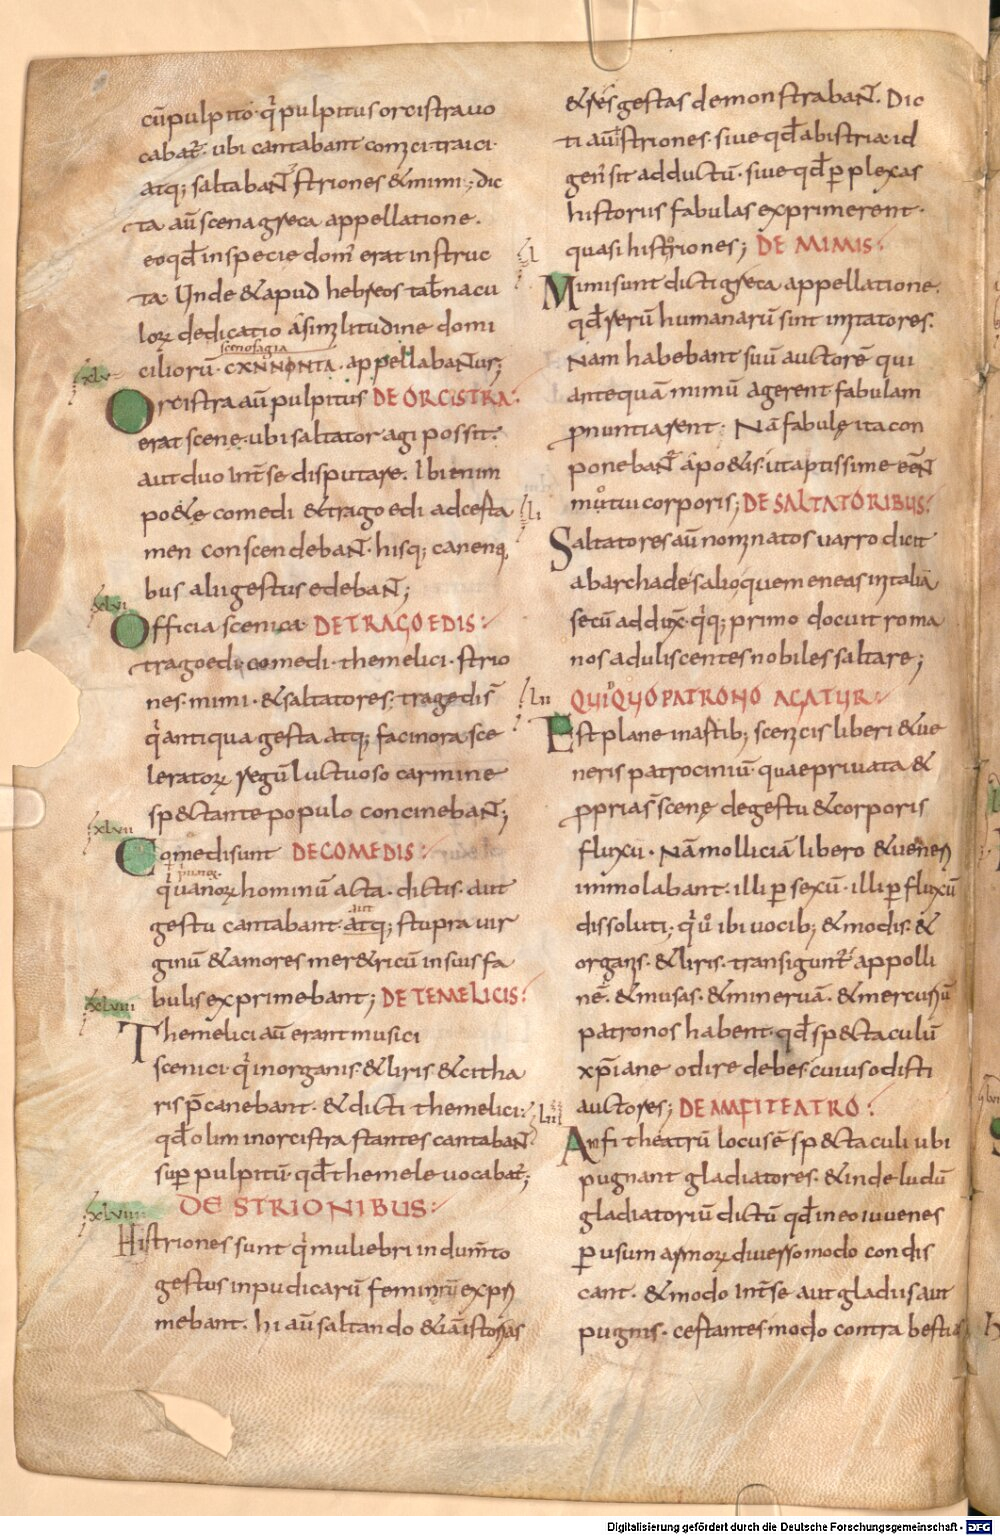 cūpulpito· q̇ pulpitus orcistra uo
cabat̄· ubi cantabant comici traici·
atq; saltabant̄ striones & mimi; dic
ta aū scena greca appellatione·
eo qđ in specie dom̄ erat instruc
ta· Unde & apud hebreos tab̄nacu
lorꝝ dedicatio a similitudine domi
scenofagia
xlv
ciliorū· CXNNONTA· appellabantur;
Orcistra aū pulpitus DE ORCISTRA:
erat scene· ubi saltator agi possit·
aut duo int̄ se disputare· Ibi enim
po&ę comedi & tragoedi ad certa
men conscendebant̄· hisq; canenti
bus alii gestus edebant̄;
xlvi
Officia scenica DE TRAGOEDIS:
tragoedi· comedi· themelici· strio
nes· mimi· & saltatores· tragedi s̄
q̇ antiqua gesta atq; facinora sce
leratorꝝ regū luctuoso carmine
sp&ctante populo concinebant̄;
xlvii
Comedi sunt DE COMEDIS:
q̇ uanorꝝ hominū acta· dictis· aut
aut
gestu cantabant· atq; stupra uir
ginū & amores mer&ricū in suis fa
bulis exprimebant; DE TEMELICIS:
xlviii
Themelici aū erant musici
scenici q̇ in organis· & liris & citha
ris p̄canebant· & dicti themelici:
qđ olim in orcistra stantes cantabant̄
sup̄ pulpitū· qđ themele uocabat̄;
xlviiii
DE STRIONIBUS:
Histriones sunt q̇ muliebri indum̄to
gestus inpudicarū feminarū expri
mebant· hi aū saltando & iā istorias
& res gestas demonstrabant̄· Dic
ti aū striones· siue qđ ab istria id
gen̄ sit adductū· siue qđ p̱ plexas
historiis fabulas exprimerent·
quasi histriones; DE MIMIS:
l
Mimi sunt dicti greca appellatione·
qđ rerū humanarū sint imitatores·
Nam habebant suū auctorē qui
antequā mimū agerent fabulam
p̱nuntiarent· Nā fabulę ita con
ponebant̄ a po&is· ut aptissime eēnt̄
motui corporis; DE SALTATORIBUS:
li
Saltatores aū nominatos uarro dicit
ab archade salio quem eneas in italiā
secū adduxit· q̇q; primo docuit roma
nos aduliscentes nobiles saltare;
lii
QUI QUO PATRONO AGATUR:
Est plane in astib; scenicis liberi & ue
neris patrociniū· quae priuata &
p̱pria s̄ scenę de gestu & corporis
fluxu· Nā molliciā libero & ueneri
immolabant· illi p̱ sexū· illi p̱ fluxū
dissoluti; q̇ ů ibi uocib; & modis· &
organis· & liris· transigunt̄· appolli
nē· & musas· & mineruā· & mercuriū
patronos habent· qđ sp&ctaculū
xp̄iane odire debes· cuius odisti
auctores; DE AMFITEATRO:
liii
Anfitheatrū locus ē sp&ctaculi ubi
pugnant gladiatores· & inde ludū
gladiatoriū dictū qđ in eo iuuenes
p̱ usum armorꝝ diuerso modo condis
cant· & modo int̄ se aut gladiis aut
pugnis· certantes modo contra bestias
Digitalisierung gefördert durch die Deutsche Forschungsgemeinschaft - DFG